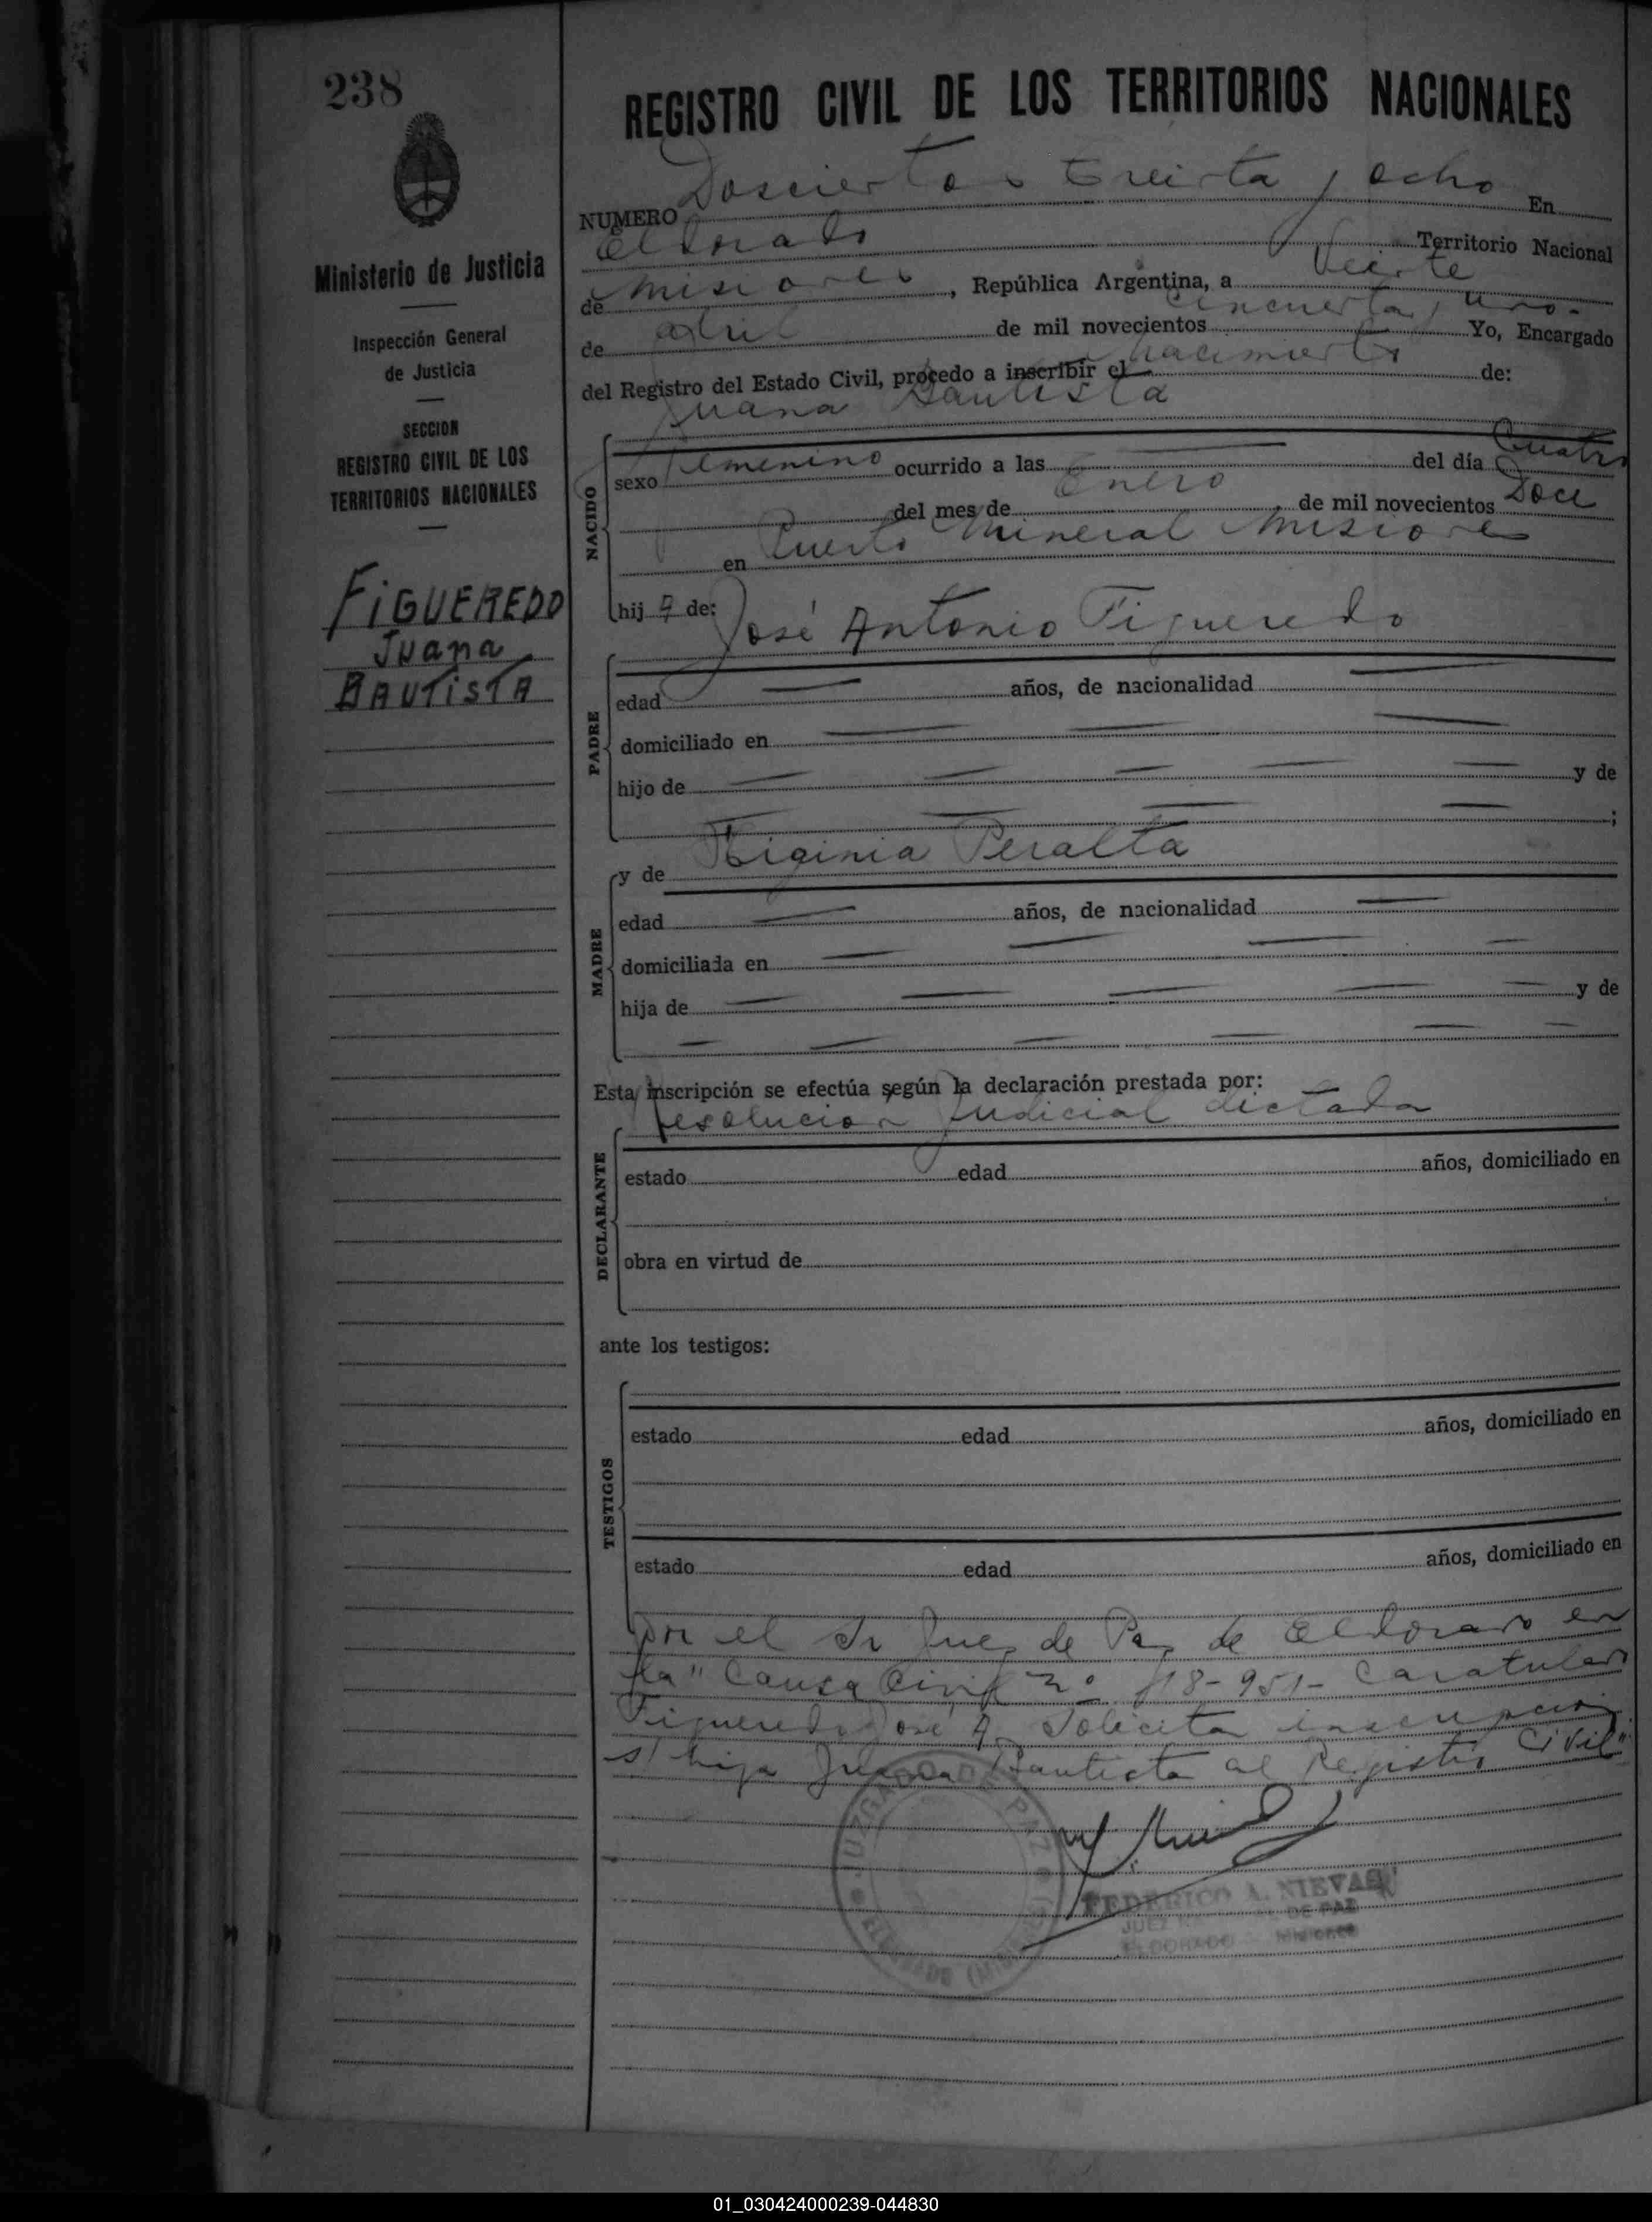 238
REGISTRO CIVIL DE LOS TERRITORIOS NACIONALES
Ministerio de Justicia
Inspección General
de Justicia
SECCION
REGISTRO CIVIL DE LOS
TERRITORIOS NACIONALES
FIGUEREDO
Juana
BAUTISTA
NUMERO Doscientos treinta y ocho En
Eldorado Territorio Nacional
de Misiones, República Argentina, a Veinte
de abril de mil novecientos cincuenta y uno.- Yo, Encargado
del Registro del Estado Civil, procedo a inscribir el nacimiento de:
Juana Bautista
NACIDO
sexo femenino ocurrido a las del día Cuatro
del mes de Enero de mil novecientos Doce
en Puerto Mineral Misiones
hija de: José Antonio Figueredo
PADRE
edad años, de nacionalidad
domiciliado en
hijo de y de
;
MADRE
y de Higinia Peralta
edad años, de nacionalidad
domiciliada en
hija de y de
Esta inscripción se efectúa según la declaración prestada por:
resolución Judicial dictada
DECLARANTE
estado edad años, domiciliado en
obra en virtud de
ante los testigos:
TESTIGOS
estado edad años, domiciliado en
estado edad años, domiciliado en
por el Sr Juez de Paz de Eldorado en
la "Causa Civil Nº 118-951- Caratulado
Figueredo José A. Solicita inscripción
s/ hija Juana Bautista al Registro Civil"
JUZGADO DE PAZ
ELDORADO (MISIONES)
FEDERICO A. NIEVAS
JUEZ DE PAZ
ELDORADO - Misiones
01_030424000239-044830